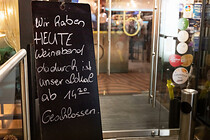 Wir haben
HEUTE
Weinabend
dadurch ist
unser Lokal
ab 14³⁰
Geschlossen.